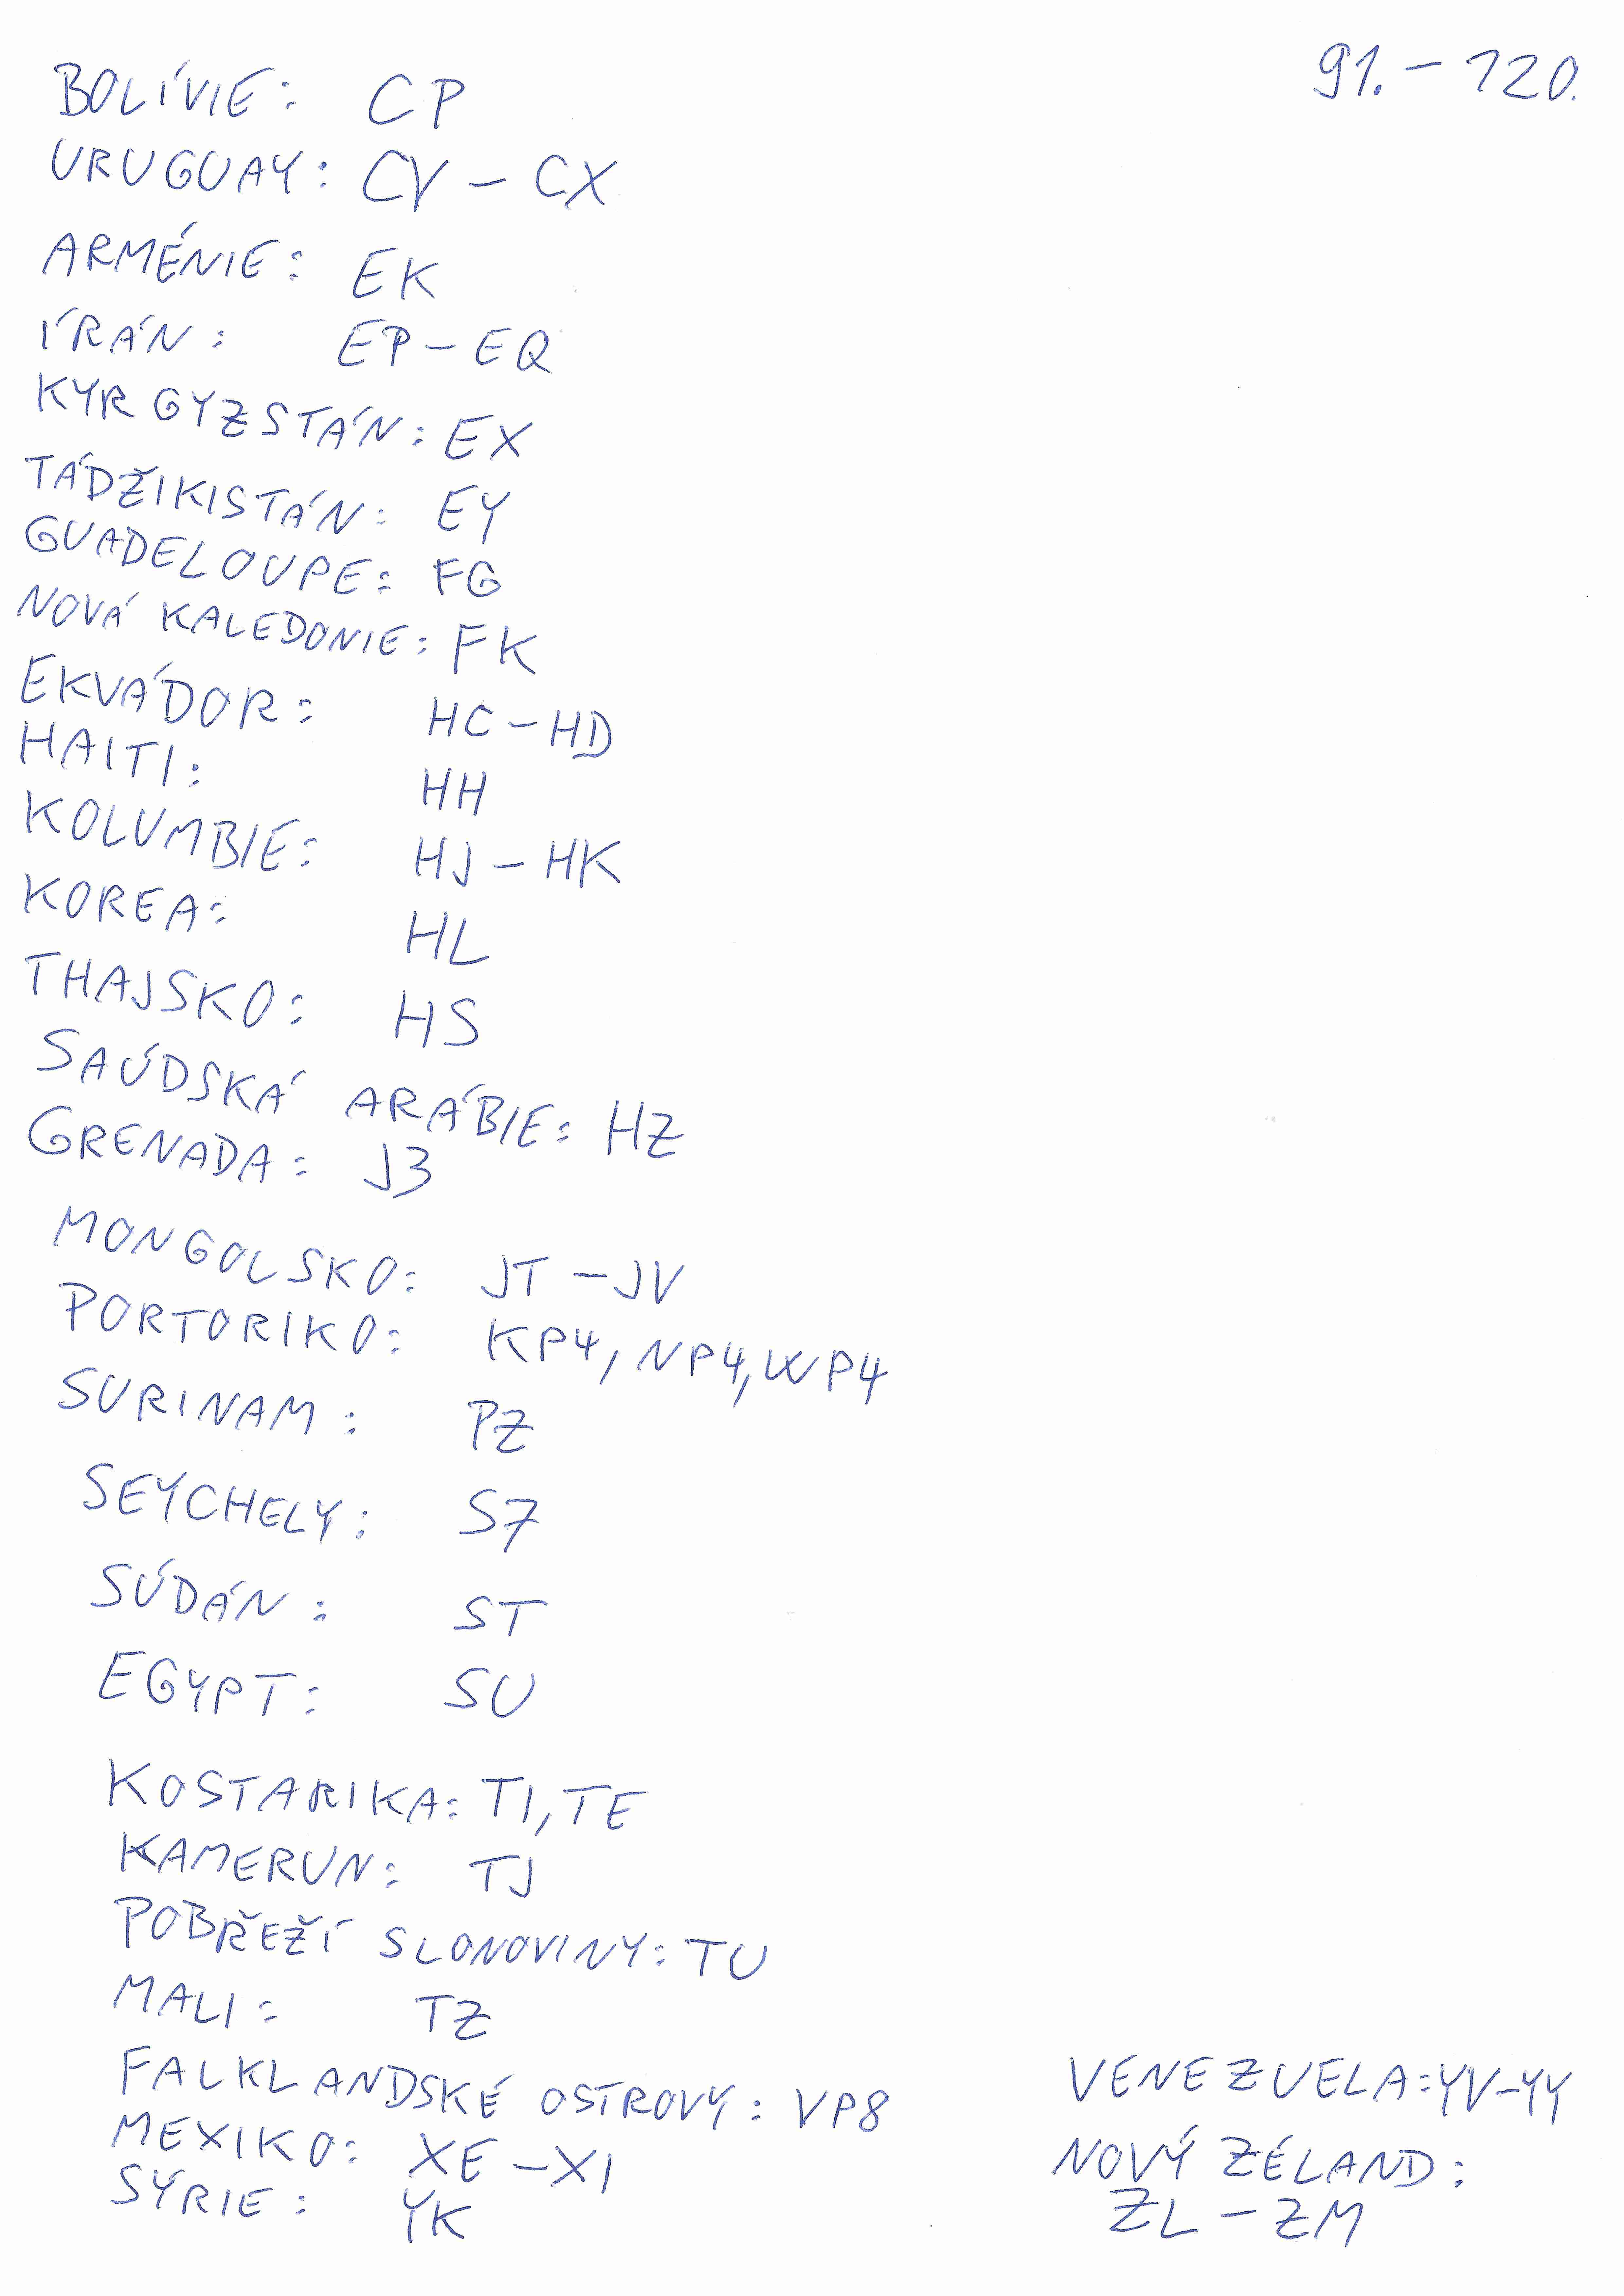 91. - 120.
BOLÍVIE: CP
URUGUAY: CV - CX
ARMÉNIE: EK
ÍRÁN: EP - EQ
KYRGYZSTÁN: EX
TÁDŽIKISTÁN: EY
GUADELOUPE: FG
NOVÁ KALEDONIE: FK
EKVÁDOR: HC - HD
HAITI: HH
KOLUMBIE: HJ - HK
KOREA: HL
THAJSKO: HS
SAÚDSKÁ ARÁBIE: HZ
GRENADA: J3
MONGOLSKO: JT - JV
PORTORIKO: KP4, NP4, WP4
SURINAM: PZ
SEYCHELY: S7
SÚDÁN: ST
EGYPT: SU
KOSTARIKA: TI, TE
KAMERUN: TJ
POBŘEŽÍ SLONOVINY: TU
MALI: TZ
FALKLANDSKÉ OSTROVY: VP8
MEXIKO: XE - XI
SÝRIE: YK
VENEZUELA: YV-YY
NOVÝ ZÉLAND:
ZL - ZM